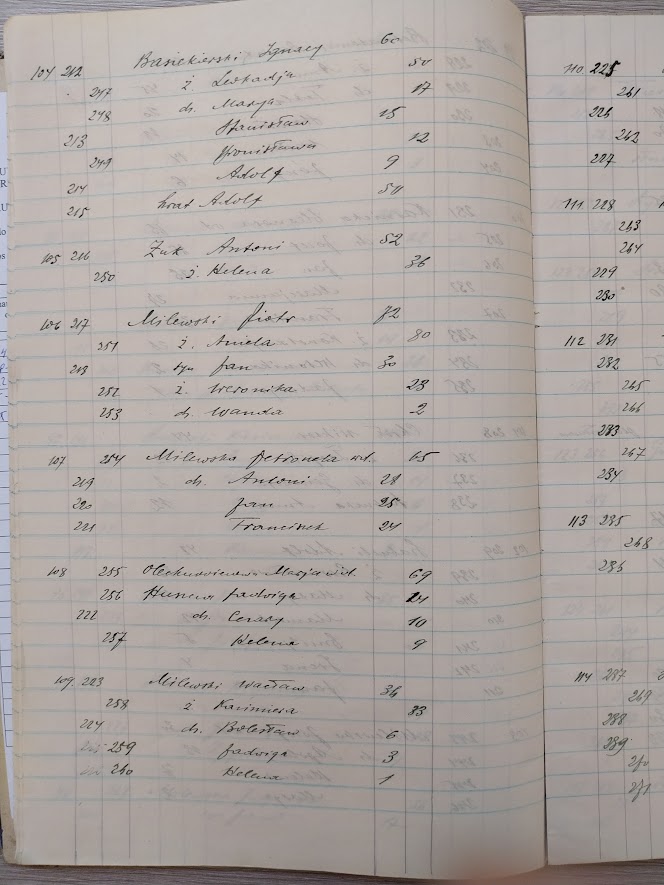 104 212 Basiekierski Ignacy 60
247 ż. Leokadja 50
248 ch. Maryja 17
Stanisław 15
213 Bronisława 12
249 Adolf 9
214 brat Adolf 50
215
105 216 Żuk Antoni 52
250 ż. Helena 36
106 217 Milewski Piotr 72
251 ż. Aniela 80
218 syn Jan 30
252 ż. Weronika 23
253 ch. Wanda 2
107 254 Milewska Petronela wd. 65
219 ch. Antoni 28
220 Jan 25
221 Franciszek 24
108 255 Marja wd. 69
256 Jadwiga 24
222 ch. Cezary 10
257 Helena 9
109. 223 Milewski Wacław 36
258 ż Kazimiera 33
224 ch. Bolesław 6
259 Jadwiga 3
260 Helena 1
110. 225
261
226
262
227
111 228
263
264
229
230
112 231
232
265
266
233
267
234
113 235
268
236
114 237
269
238
239
270
271